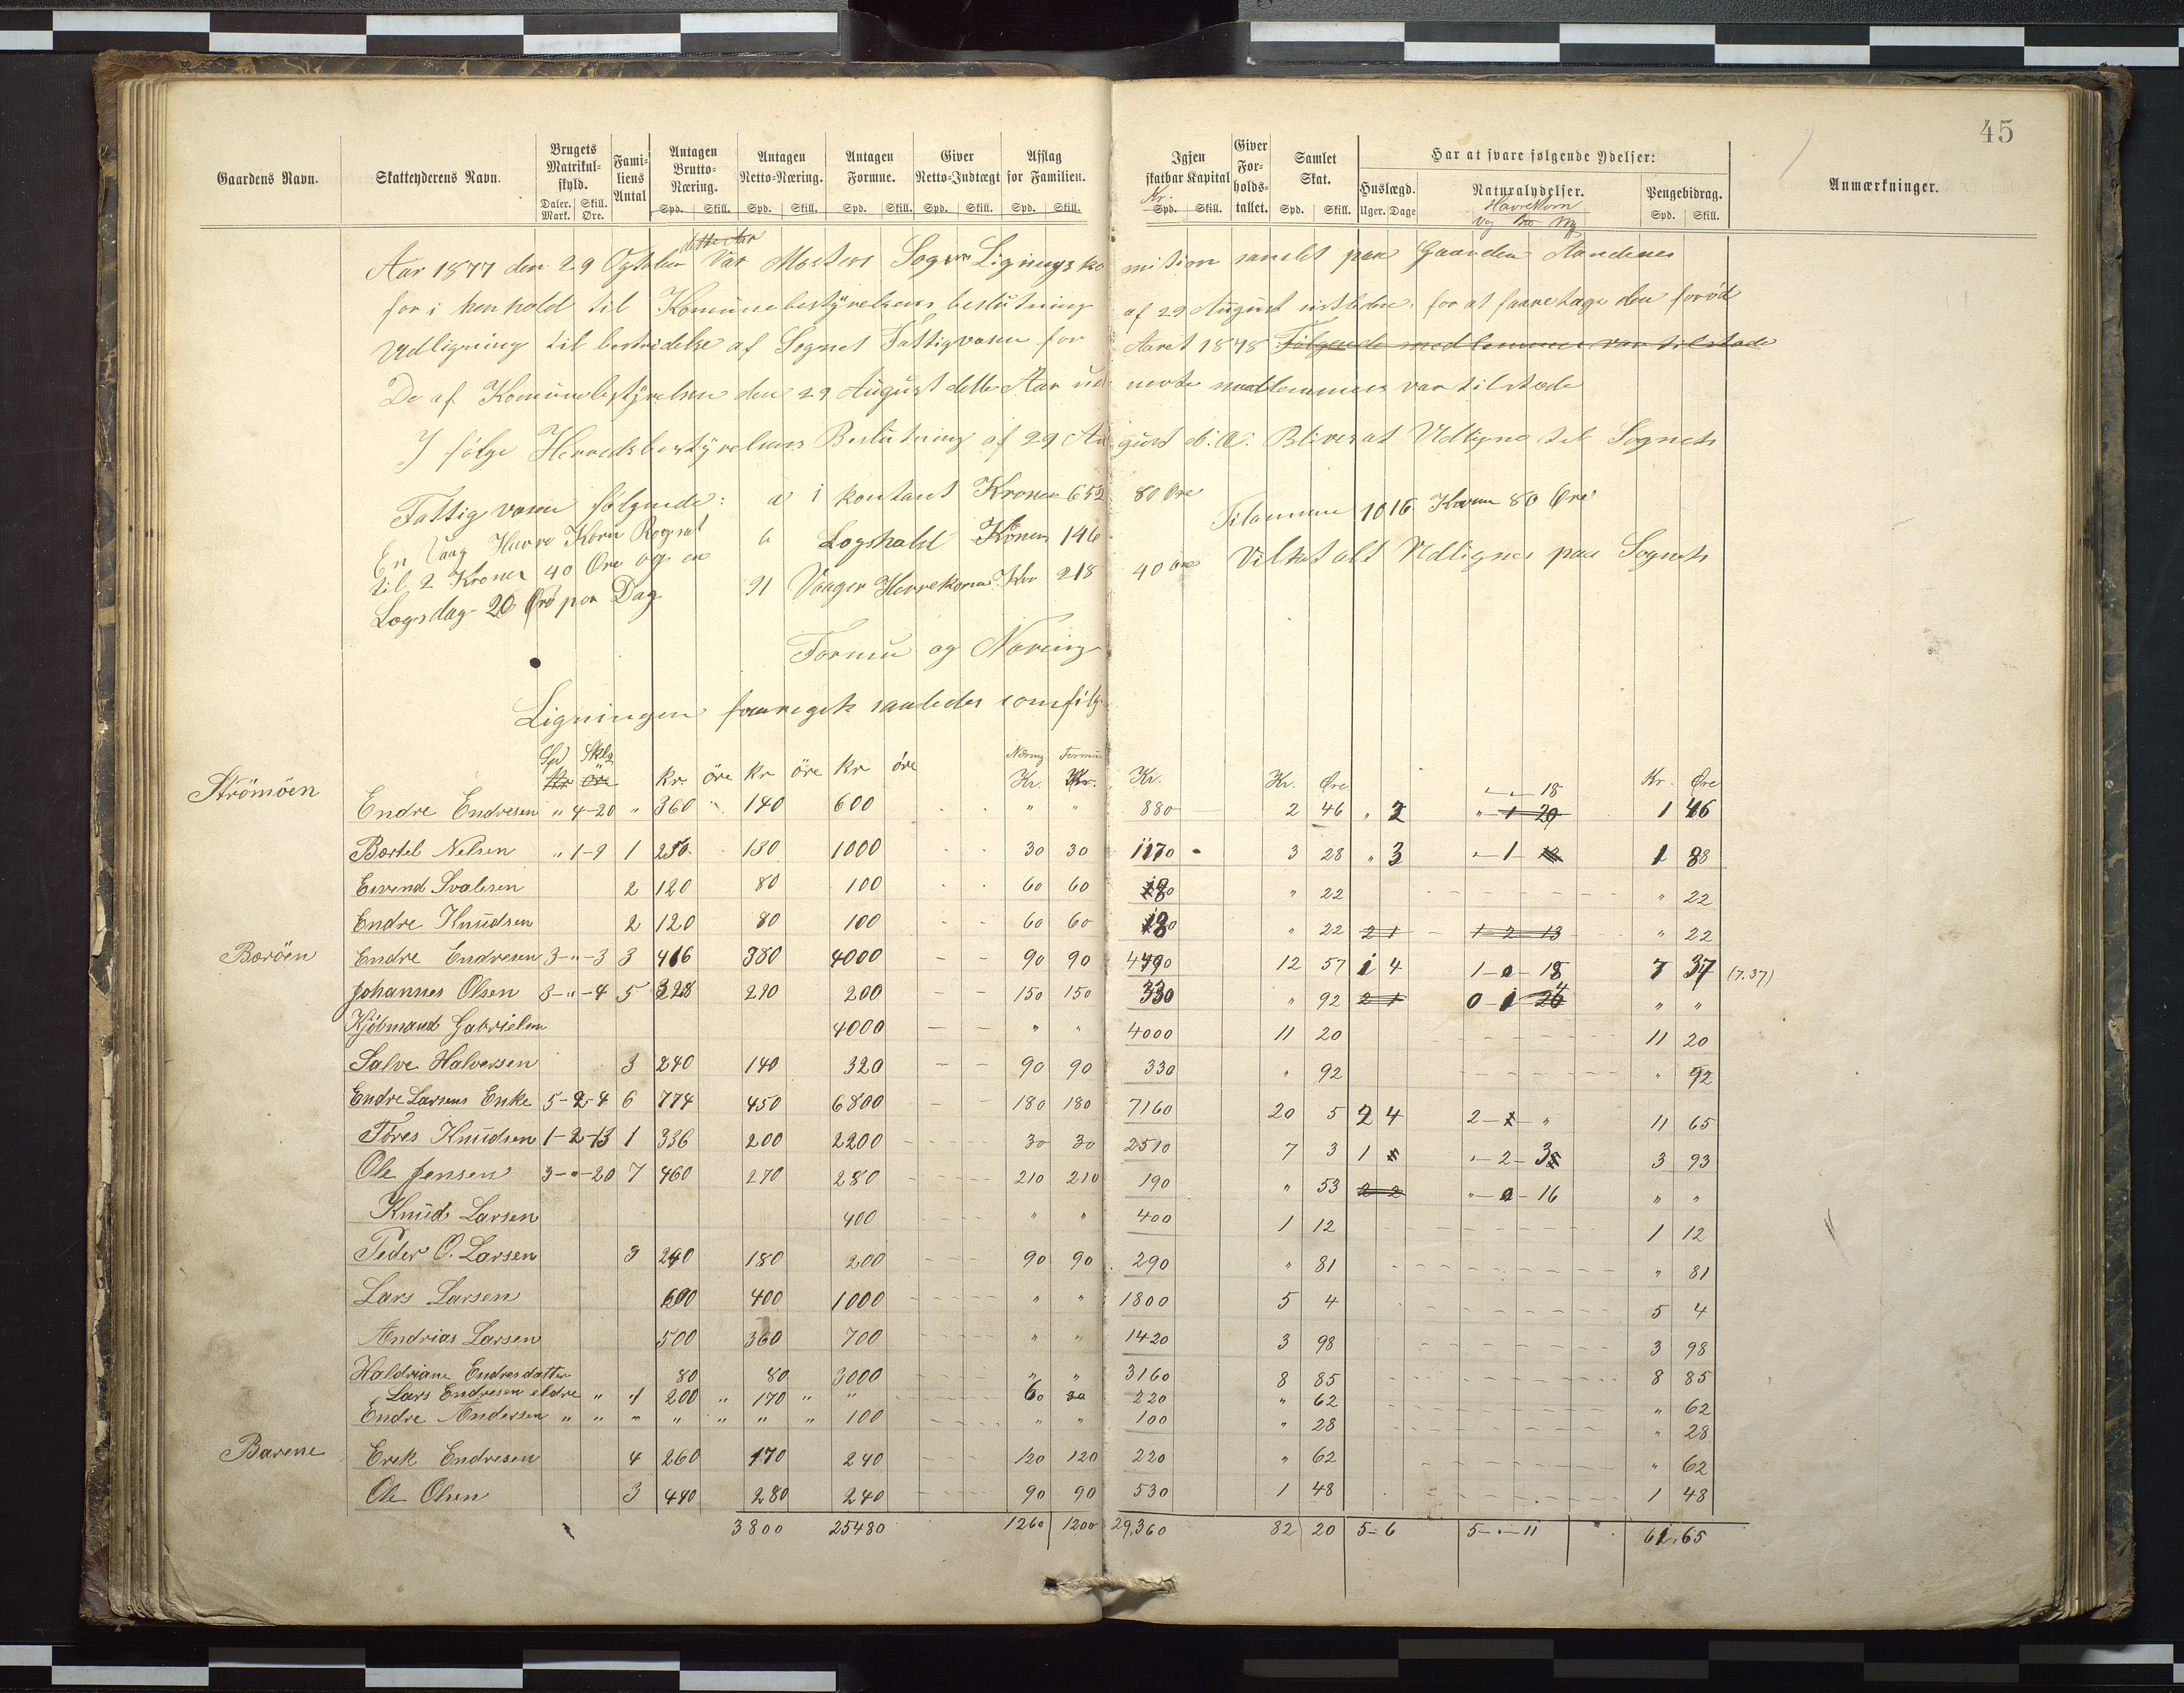 45
Gaardens Navn. Skatteyderens Navn. Brugets Matrikul-skyld. Fami-liens Antal Antagen Brutto-Næring. Antagen Netto-Næring. Antagen Formue. Giver Netto-Indtægt Afslag for Familien. Igjen skatbar Kapital Giver For-holds-tallet. Samlet Skat. Har at svare følgende Ydelser: Anmærkninger.
Huslægd. Naturalydelser. Pengebidrag.
Daler. Mark. Skill. Øre. Spd. Skill. Spd. Skill. Spd. Skill. Spd. Skill. Spd. Skill. Kr. Spd. Skill. Spd. Skill. Uger. Dage Havrekorn Spd. Skill.
dette Aar
Aar 1877 den 29 Ogtober Var Mosters Sogns Lignings ko mision samlet paa Gaarden Aandenes
for i henhold til Komunebestyrelsens beslutning af 29 August sistleden. for at foaretage den
Udligning til bestridelse af Sognet Fattigvæsen for Aaret 1878 Følgende medlemmer var tilstæde
De af Komunebestyrelsen den 29 August dette Aar ud nevte medlemmer var tilstæde
I følge Herredsbestyrelsens Beslutning af 29 August d. A. Bliver at Udligne til Sognets
Fattigvæsen følgende: a i kontant Kroner 652 80 Øre Tilsammen 1016 Kroner 80 Øre
En Vaag Havre Korn Regnet b Logshold Kroner 146
til 2 Kroner 40 Øre og en 91 Vaager Havrekorn Kr 218 40 Øre Vilket alt Udlignes paa Sognets
Logsdag 20 Øre por Dag
Formu og Næring
Ligningen foaregik saaledes somfølg
Spd Sklg Næring Formue
Strömöen Kr Øre kr. öre kr öre kr öre Kr. Kr. Kr. Kr. Øre „ „ 18 Kr. Øre
Endre Endresen „ 4-20 „ 360 „ 140 600 „ „ 880 2 46 „ 2 „ 1 20 1 46
Bortel Nelsen „ 1-9 1 250 130 1000 30 30 1170 3 28 „ 3 „-1- 1 88
Eivend Svalesen 2 120 80 100 60 60 180 „ 22 „ 22
Endre Knudsen 2 120 80 100 60 60 180 „ 22 2 1 1 2 13 „ 22
Boröen Endre Endresen 3-„-3 3 416 380 4000 90 90 4490 12 57 1 4 1-0-18 7 37 (7.37)
Johannes Olsen 3-„-4 5 328 290 200 150 150 330 „ 92 2 1 0 1 26 „ „
Kjöbmand Gabrielsen 4000 „ „ 4000 11 20 11 20
Salve Halversen 3 240 140 320 90 90 330 „ 92 „ 92
Endre Larsens Enke 5-2-4 6 774 450 6800 180 180 7160 20 5 2 4 2-„ 11 65
Töres Knudsen 1-2-13 1 336 200 2200 30 30 2510 7 3 1 „-2-3 3 93
Ole Jensen 3-„-20 7 460 270 280 210 210 190 „ 53 2 2 „-0-16 „ „
Knud Larsen 400 „ „ 400 1 12 1 12
Peder O. Larsen 3 240 180 200 90 90 290 „ 81 „ 81
Lars Larsen 600 400 1000 „ „ 1800 5 4 5 4
Andrias Larsen 500 360 700 „ „ 1420 3 98 3 98
Haldriane Endresdatter 80 80 3000 „ „ 3160 8 85 8 85
Lars Endresen eldre „ 1 200 „ 170 „ „ 60 30 220 „ 62 „ 62
Endre Andersen „ „ „ „ „ „ „ 100 „ „ 100 „ 28 „ 28
Barene Erek Endresen 4 260 170 240 120 120 220 „ 62 „ 62
Ole Olsen 3 440 280 240 90 90 530 1 48 1 48
3800 25480 1260 1200 29,360 82 20 5-6 5-„-11 61,65